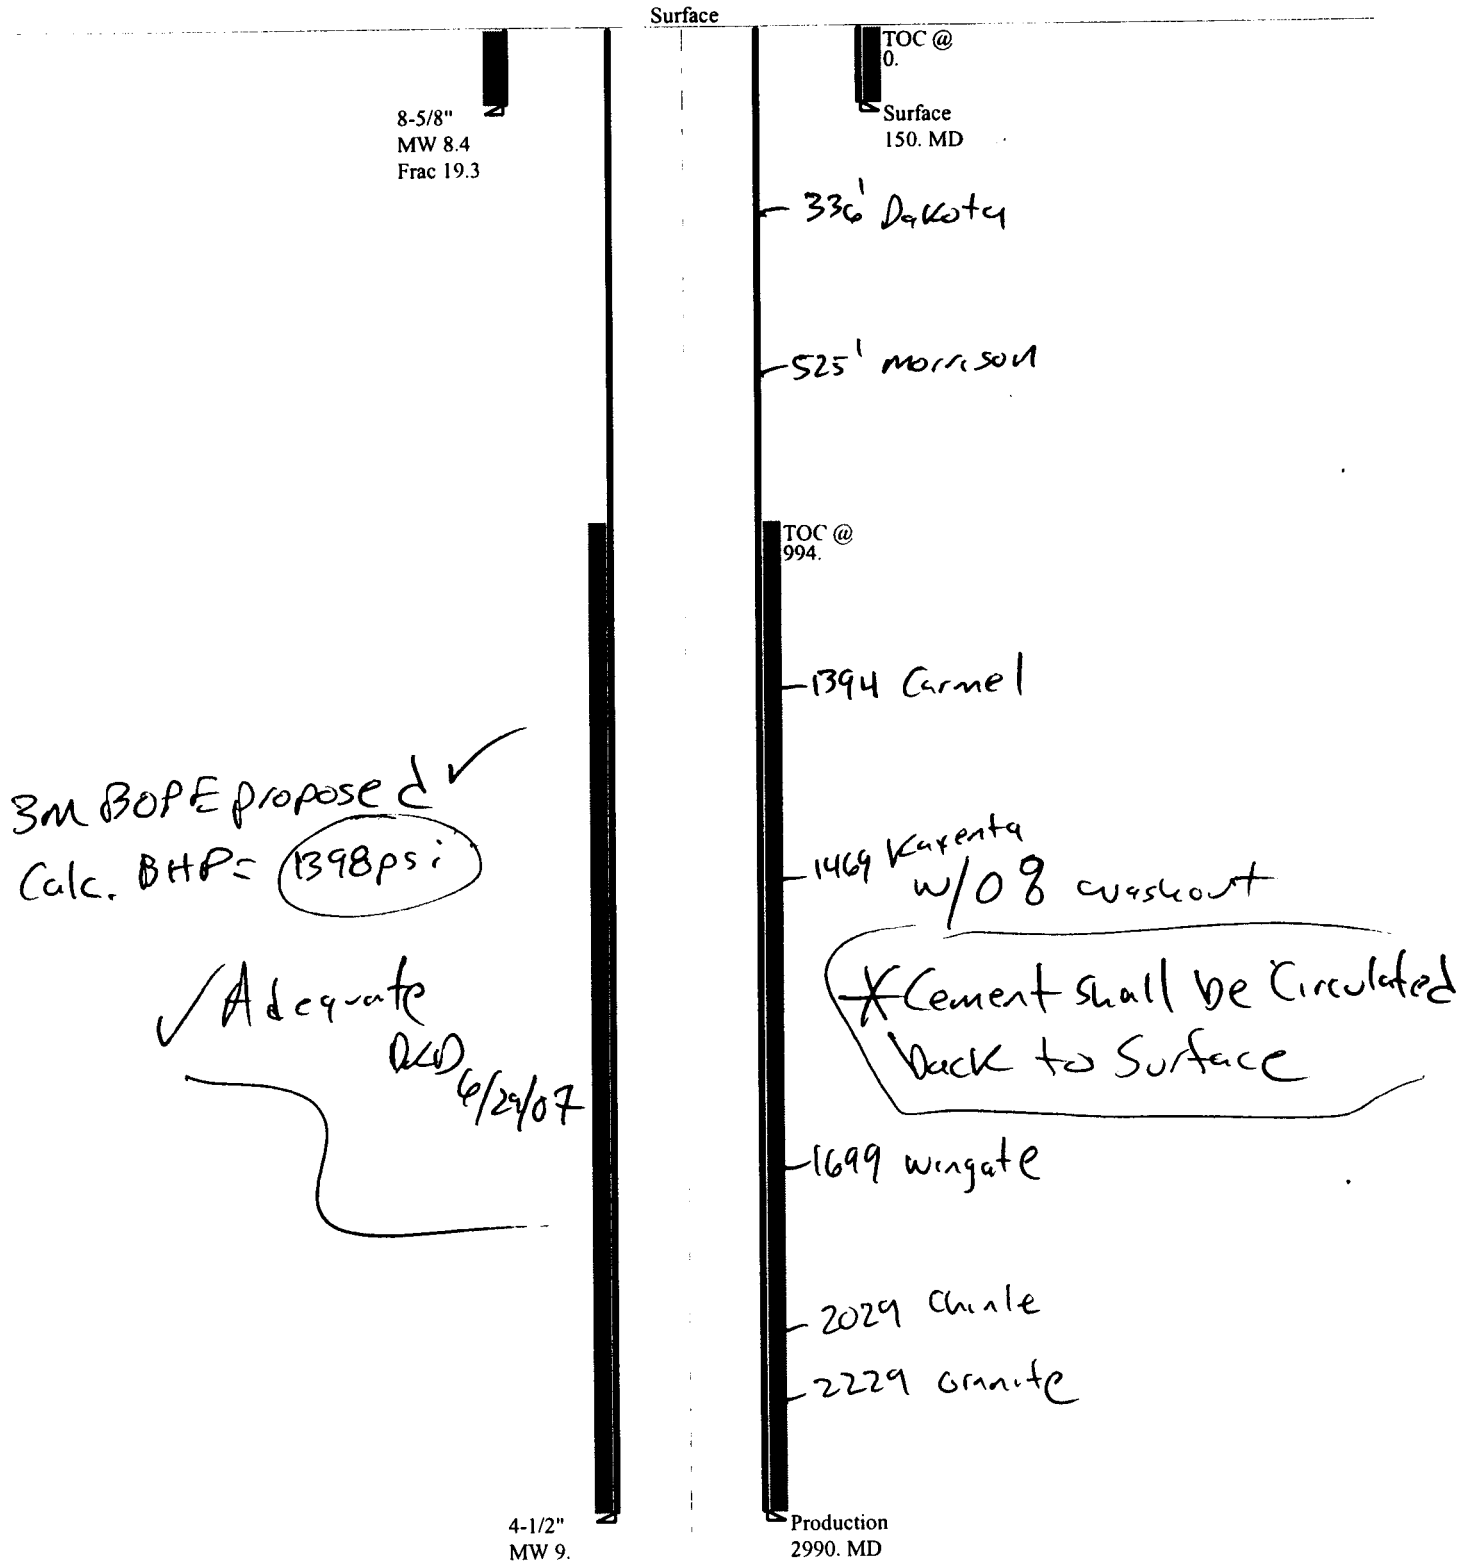 Surface
TOC @
0.
8-5/8"
MW 8.4
Frac 19.3
Surface
150. MD
336' Dakota
525' morrison
TOC @
994.
1394 Carmel
3M BOPE proposed ✓
Calc. BHP= 1398psi
1469 Kayenta
w/0% washout
✓ Adequate
DKD
6/29/07
*Cement shall be Circulated
back to Surface
1699 wingate
2029 Chinle
2229 Granite
4-1/2"
MW 9.
Production
2990. MD